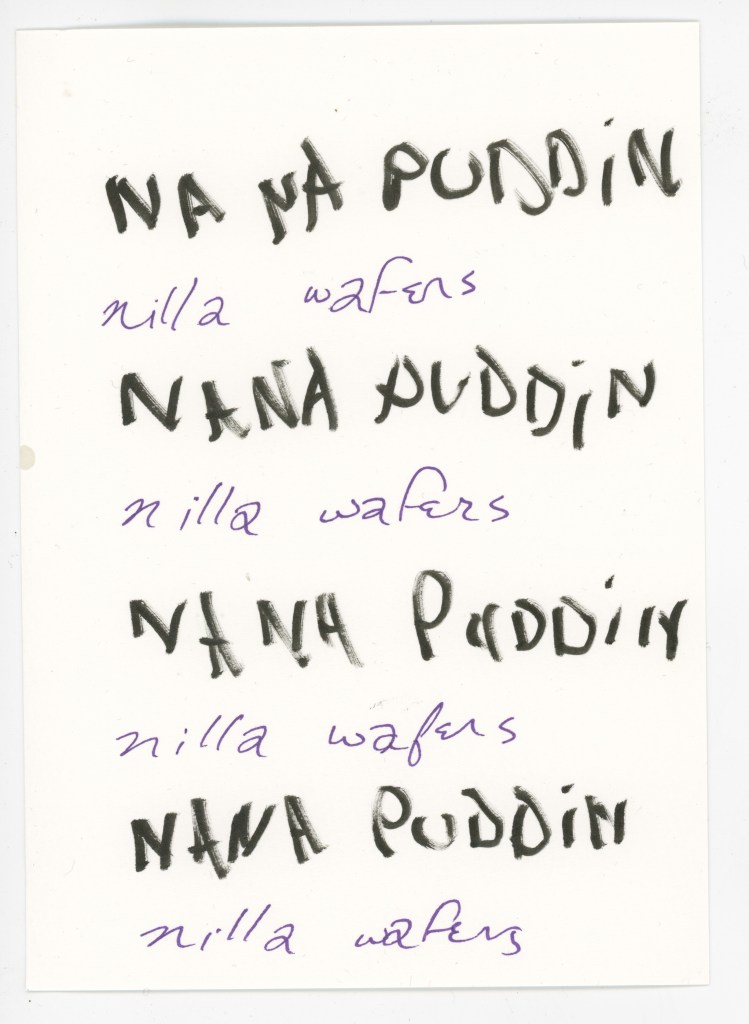 NA NA PUDDiN
nilla wafers
NANA PUDDiN
nilla wafers
NANA PUDDiN
nilla wafers
NANA PUDDiN
nilla wafers